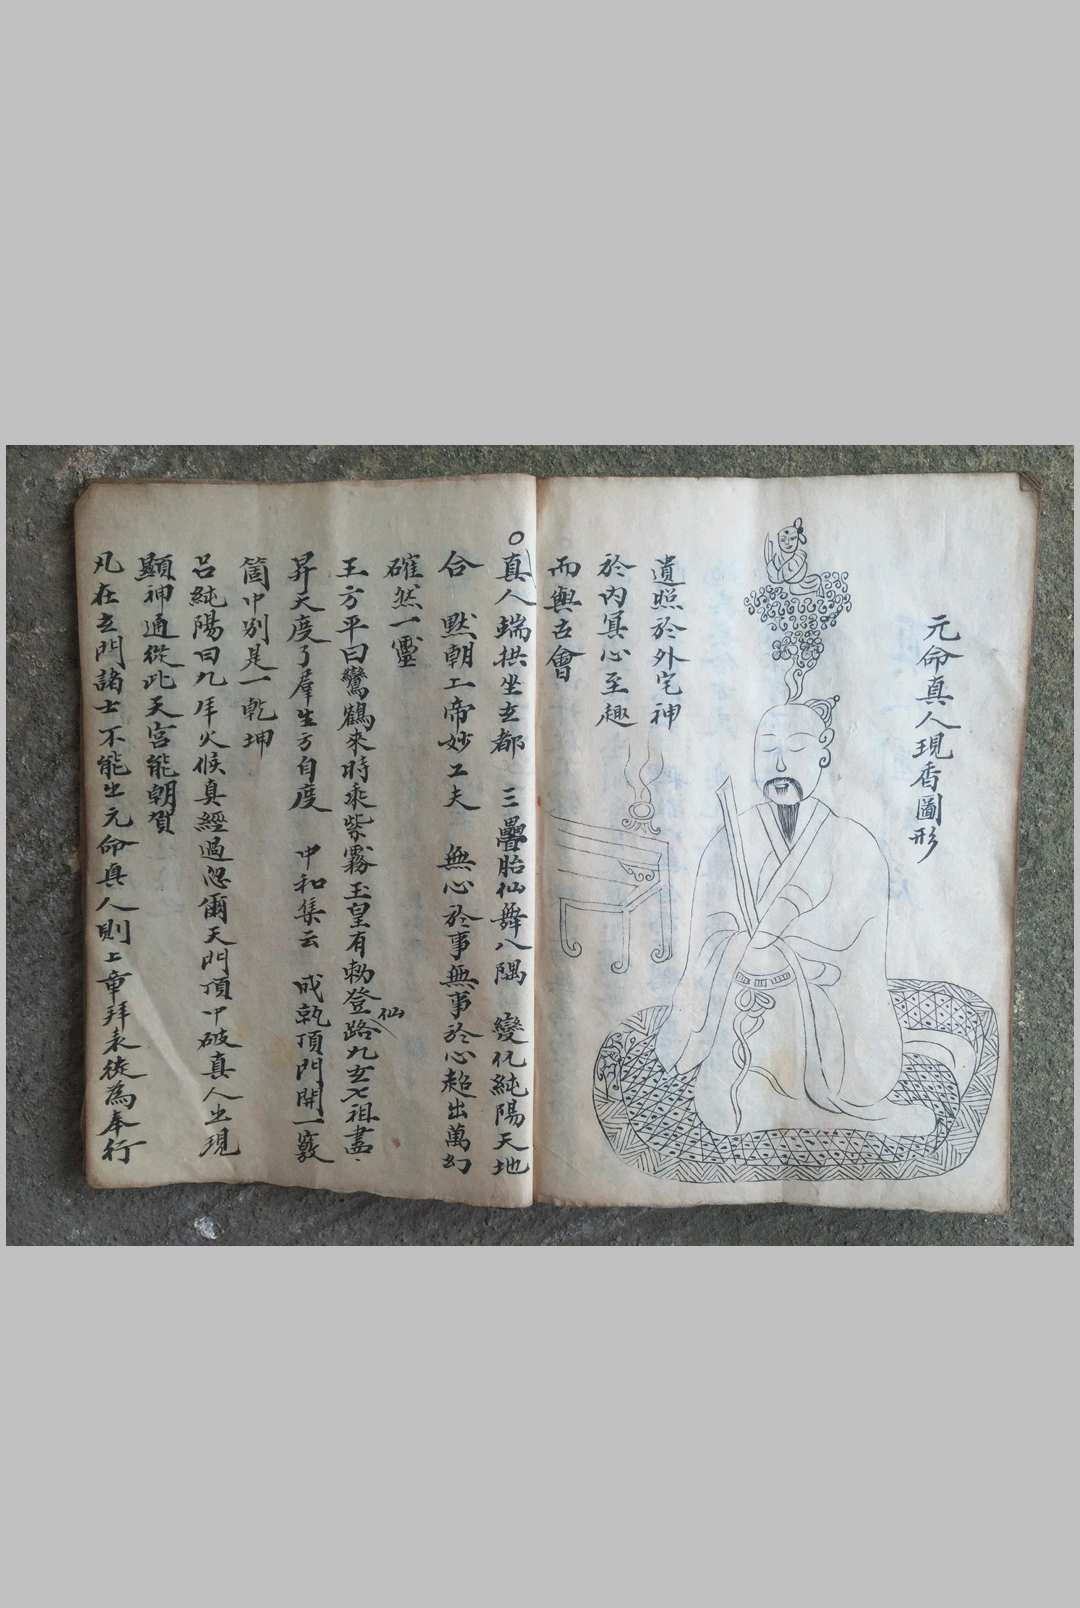 元命真人現香圖形
遺照於外宅神
於內冥心至趣
而與古會
○真人端拱坐玄都 三疊胎仙舞八隅 變化純陽天地
合 默朝上帝妙工夫 無心於事無事於心超出萬幻
確然一靈
王方平曰鸞鶴來時乘紫霧玉皇有勅登仙路九玄七祖盡
昇天度了羣生方自度 中和集云 成就頂門開一竅
箇中別是一乾坤
呂純陽曰九年火候真經過忽爾天門頂中破真人出現
顯神通從此天宮能朝賀
凡在玄門諸士不能出元命真人則上章拜表徒為奉行